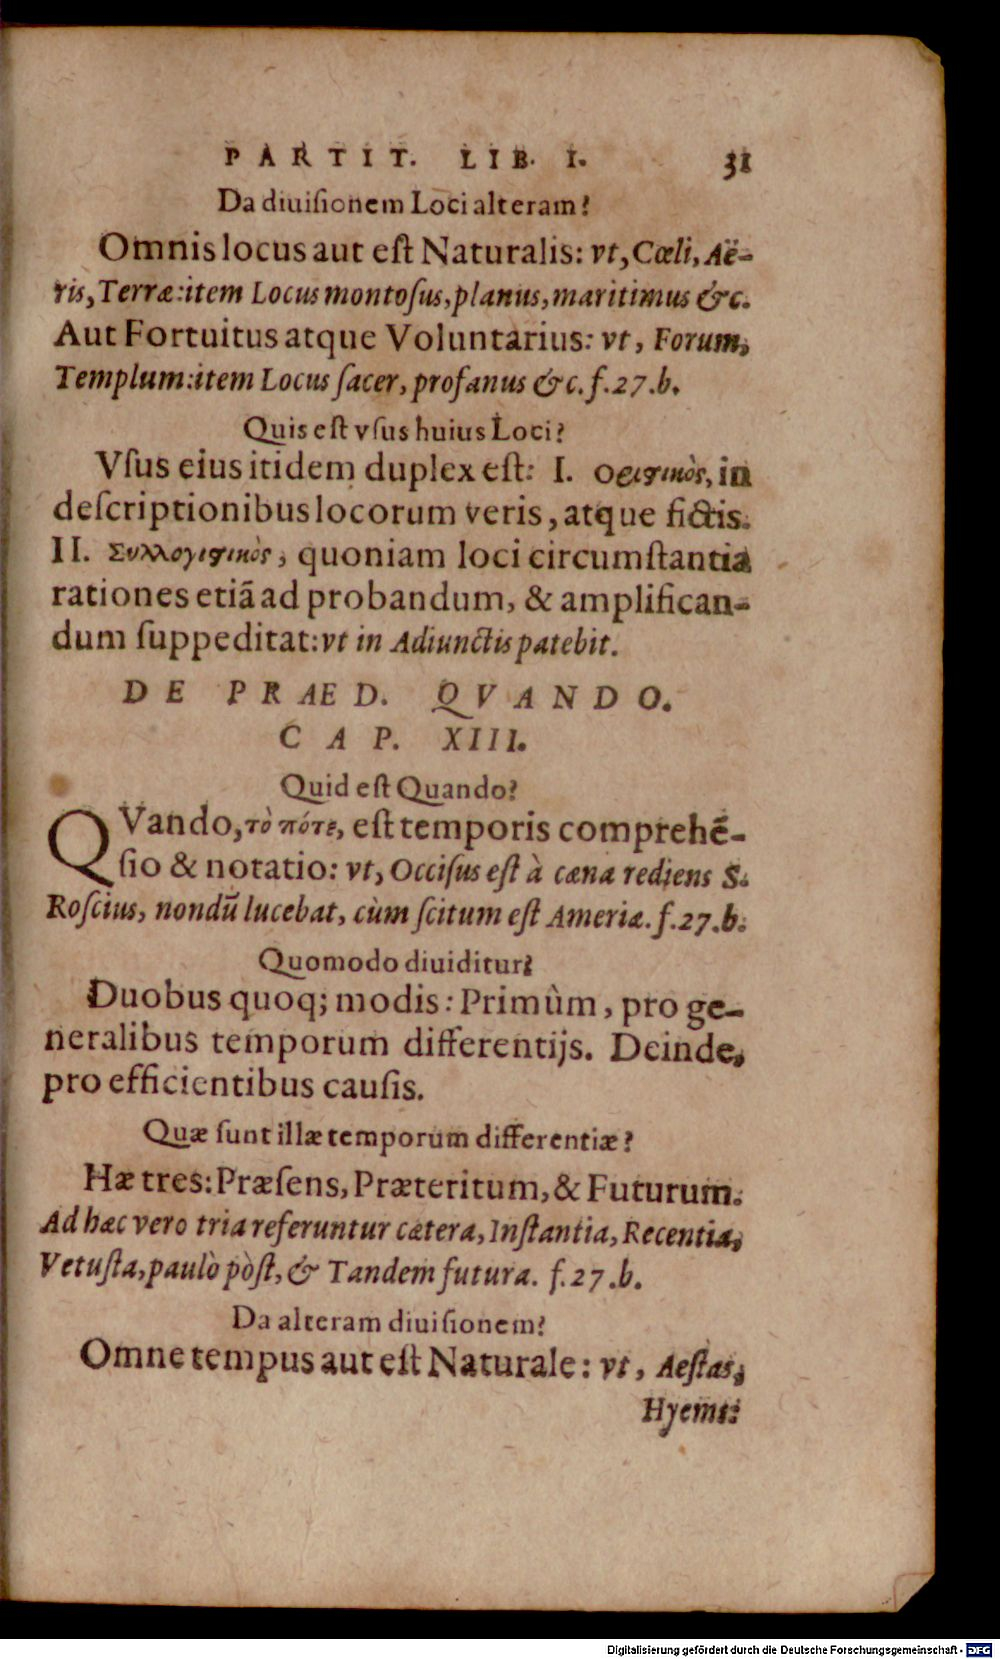 PARTIT. LIB. I. 31
Da diuiſionem Loci alteram?
Omnis locus aut eſt Naturalis: vt, Cœli, Aë-
ris, Terræ: item Locus montoſus, planus, maritimus &c.
Aut Fortuitus atque Voluntarius: vt, Forum,
Templum: item Locus ſacer, profanus &c. f. 27. b.
Quis eſt vſus huius Loci?
Vſus eius itidem duplex eſt: I. Ὁριστικὸς, in
deſcriptionibus locorum veris, atque fictis.
II. Συλλογιστικὸς, quoniam loci circumſtantia
rationes etiã ad probandum, & amplifican-
dum ſuppeditat: vt in Adiunctis patebit.
DE PRAED. QVANDO.
CAP. XIII.
Quid eſt Quando?
QVando, τὸ πότε, eſt temporis comprehẽ-
ſio & notatio: vt, Occiſus eſt à cæna rediens S.
Roſcius, nondũ lucebat, cùm ſcitum eſt Ameriæ. f. 27. b.
Quomodo diuiditur?
Duobus quoq; modis: Primùm, pro ge-
neralibus temporum differentijs. Deinde,
pro efficientibus cauſis.
Quæ ſunt illæ temporum differentiæ?
Hæ tres: Præſens, Præteritum, & Futurum.
Ad hæc vero tria referuntur cætera, Inſtantia, Recentia,
Vetuſta, paulò pòſt, & Tandem futura. f. 27. b.
Da alteram diuiſionem?
Omne tempus aut eſt Naturale: vt, Aeſtas,
Hyems:
Digitalisierung gefördert durch die Deutsche Forschungsgemeinschaft - DFG